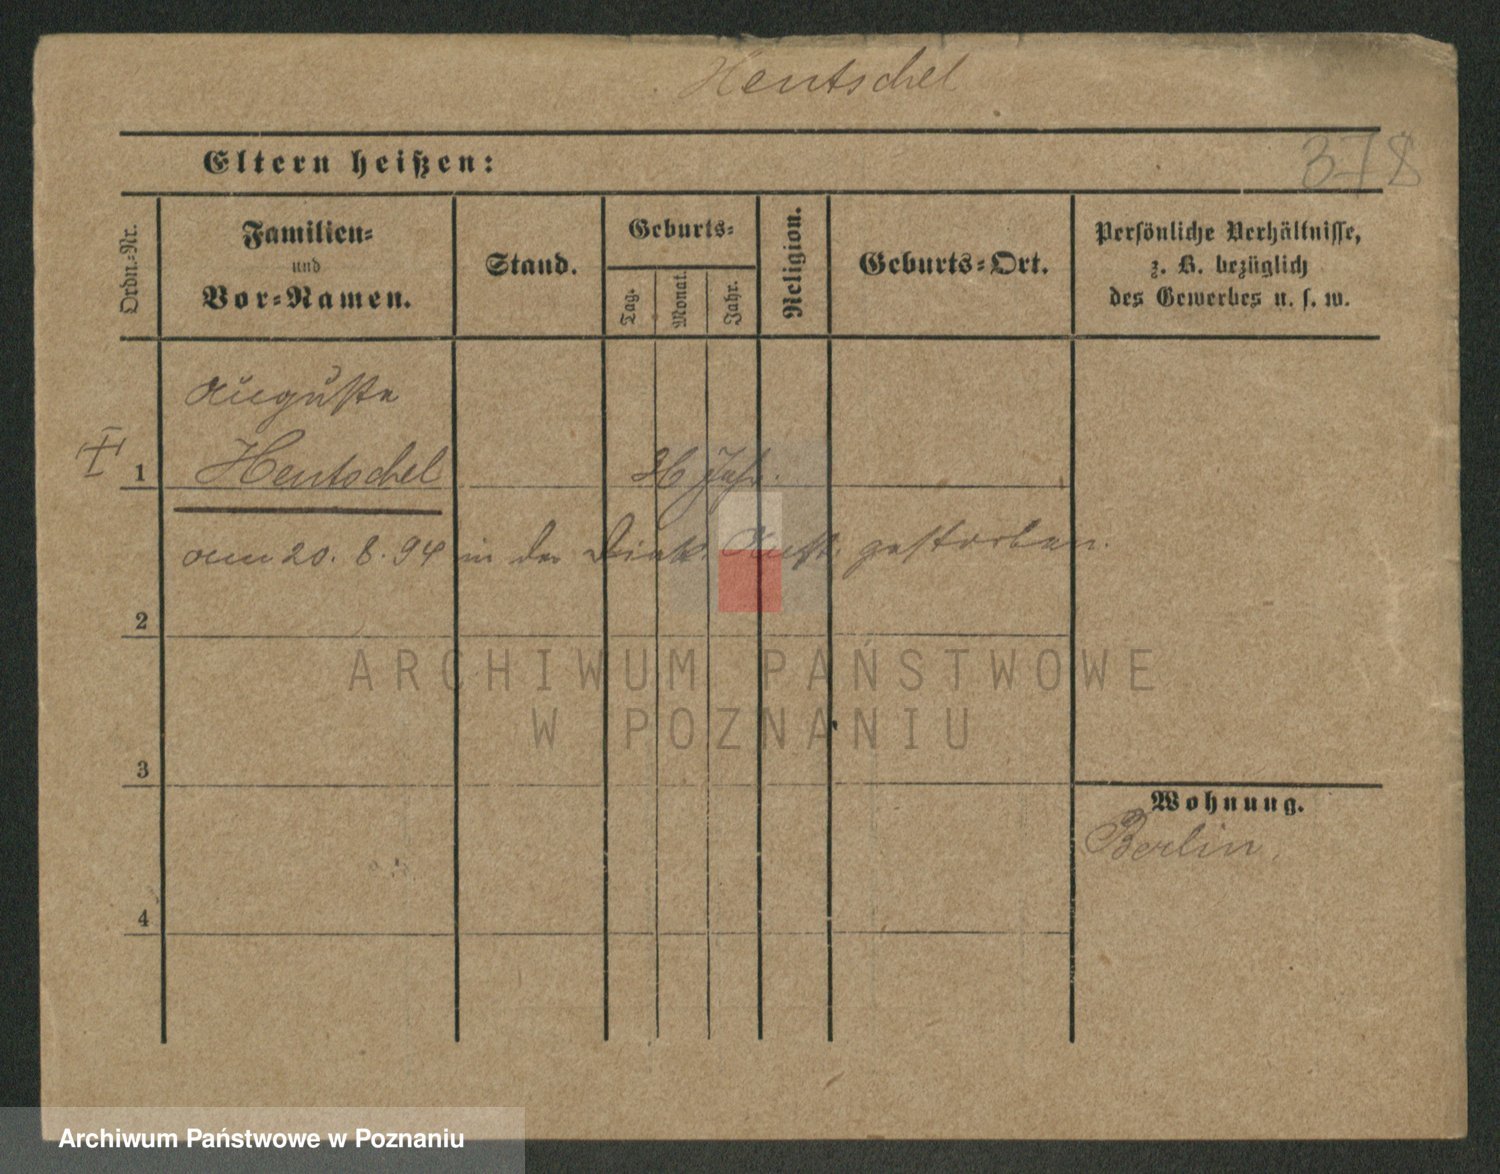 Hentschel
378
Eltern heißen:
Ordn.-Nr.
Familien-
und
Vor-Namen.
Stand.
Geburts-
Tag.
Monat.
Jahr.
Religion.
Geburts-Ort.
Persönliche Verhältnisse,
z. B. bezüglich
des Gewerbes u. s. w.
Auguste
1 Hentschel 36 Jahr.
am 20. 8. 94 in der Diak. Anst. gestorben.
2
ARCHIWUM PAŃSTWOWE
W POZNANIU
3
Wohnung.
Berlin.
4
Archiwum Państwowe w Poznaniu